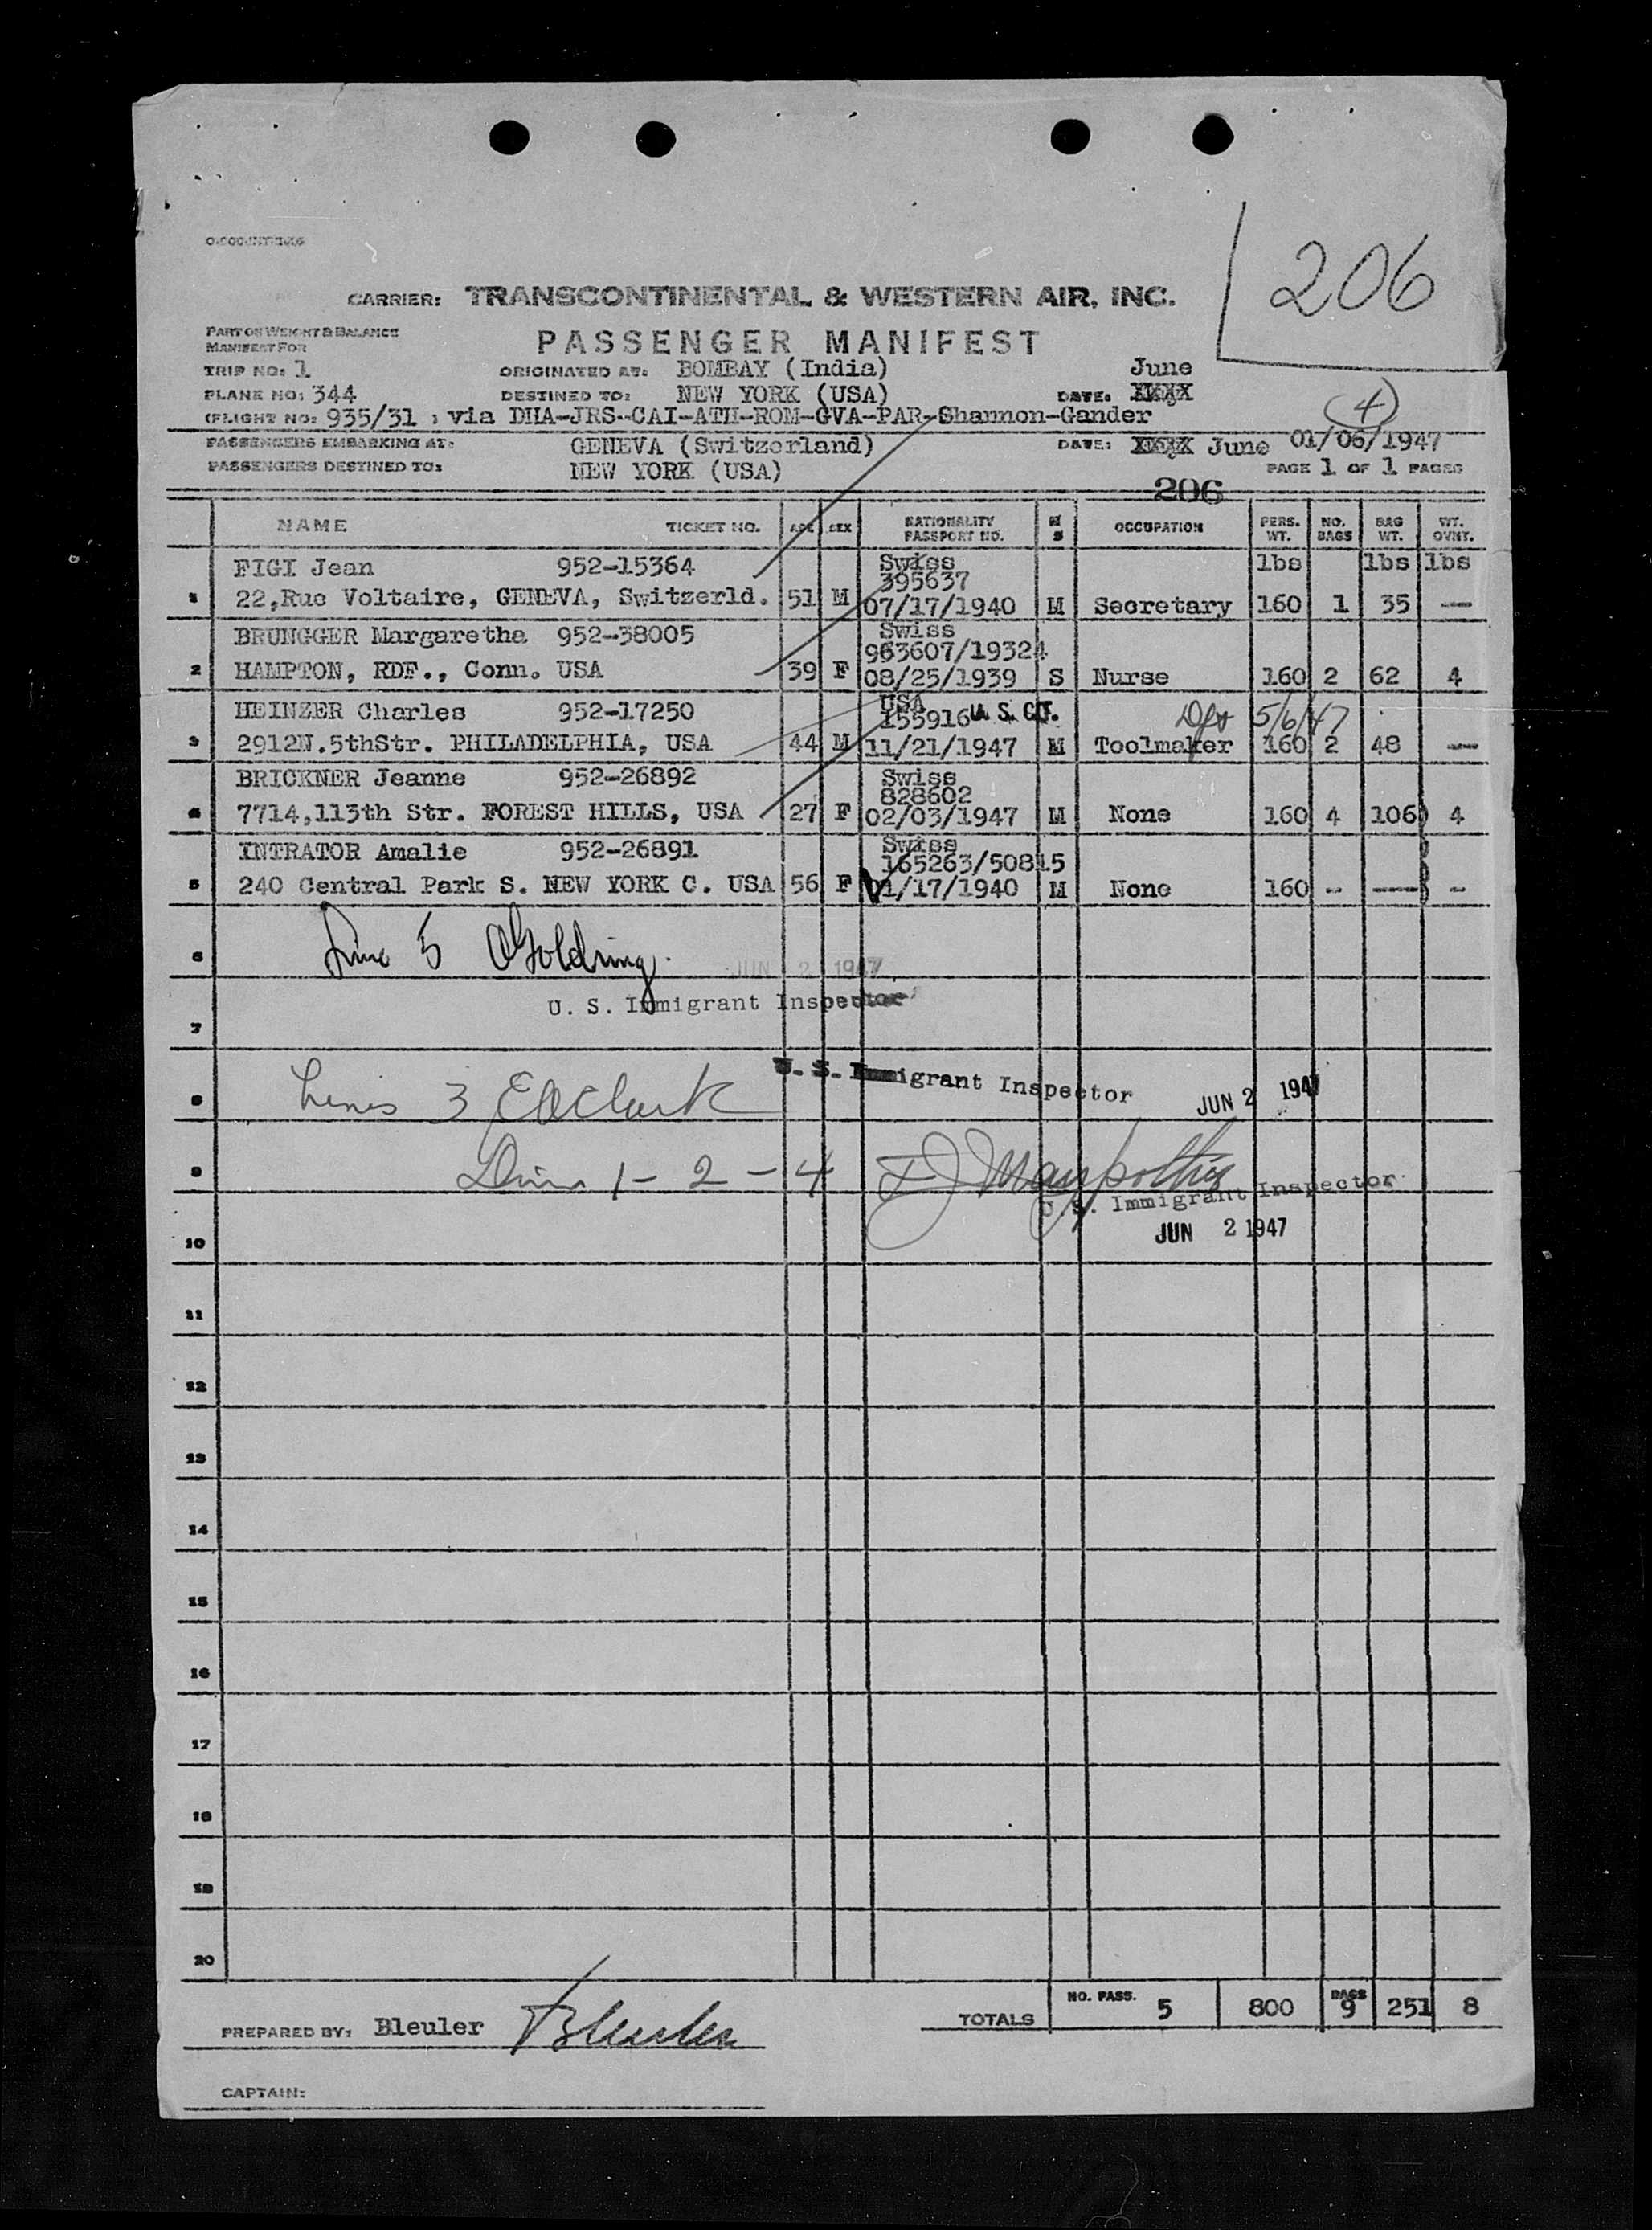 206
CARRIER: TRANSCONTINENTAL & WESTERN AIR, INC.
PART ON WEIGHT & BALANCE
MANIFEST FOR
PASSENGER MANIFEST
TRIP NO: 1 ORIGINATED AT: BOMBAY (India) June
PLANE NO: 344 DESTINED TO: NEW YORK (USA) DATE: XXXX
(FLIGHT NO: 935/31 ; via DHA-JRS-CAI-ATH-ROM-GVA-PAR-Shannon-Gander (4)
PASSENGERS EMBARKING AT: GENEVA (Switzerland) DATE: XXXX June 01/06/1947
PASSENGERS DESTINED TO: NEW YORK (USA) PAGE 1 OF 1 PAGES
206
NAME TICKET NO. AGE SEX NATIONALITY PASSPORT NO. M S OCCUPATION PERS. WT. NO. BAGS BAG WT. WT. OVHT.
FIGI Jean 952-15364 Swiss lbs lbs lbs
395637
1 22,Rue Voltaire, GENEVA, Switzerld. 51 M 07/17/1940 M Secretary 160 1 35 —
BRUNGGER Margaretha 952-38005 Swiss
963607/19324
2 HAMPTON, RDF., Conn. USA 39 F 08/25/1939 S Nurse 160 2 62 4
HEINZER Charles 952-17250 USA
155916 U. S. CIT. 5/6/47
3 2912N.5thStr. PHILADELPHIA, USA 44 M 11/21/1947 M Toolmaker 160 2 48 —
BRICKNER Jeanne 952-26892 Swiss
828602
4 7714,113th Str. FOREST HILLS, USA 27 F 02/03/1947 M None 160 4 106 4
INTRATOR Amalie 952-26891 Swiss
165263/50815
5 240 Central Park S. NEW YORK C. USA 56 F 01/17/1940 M None 160 -- --- -
6 Line 5 Goldring JUN 2 1947
U. S. Immigrant Inspector
7
U. S. Immigrant Inspector JUN 2 1947
8 Lines 3 Clark
9 Lines 1 - 2 - 4
U. S. Immigrant Inspector
10 JUN 2 1947
11
12
13
14
15
16
17
18
19
20
TOTALS NO. PASS. 5 800 BAGS 9 251 8
PREPARED BY: Bleuler Bleuler
CAPTAIN: